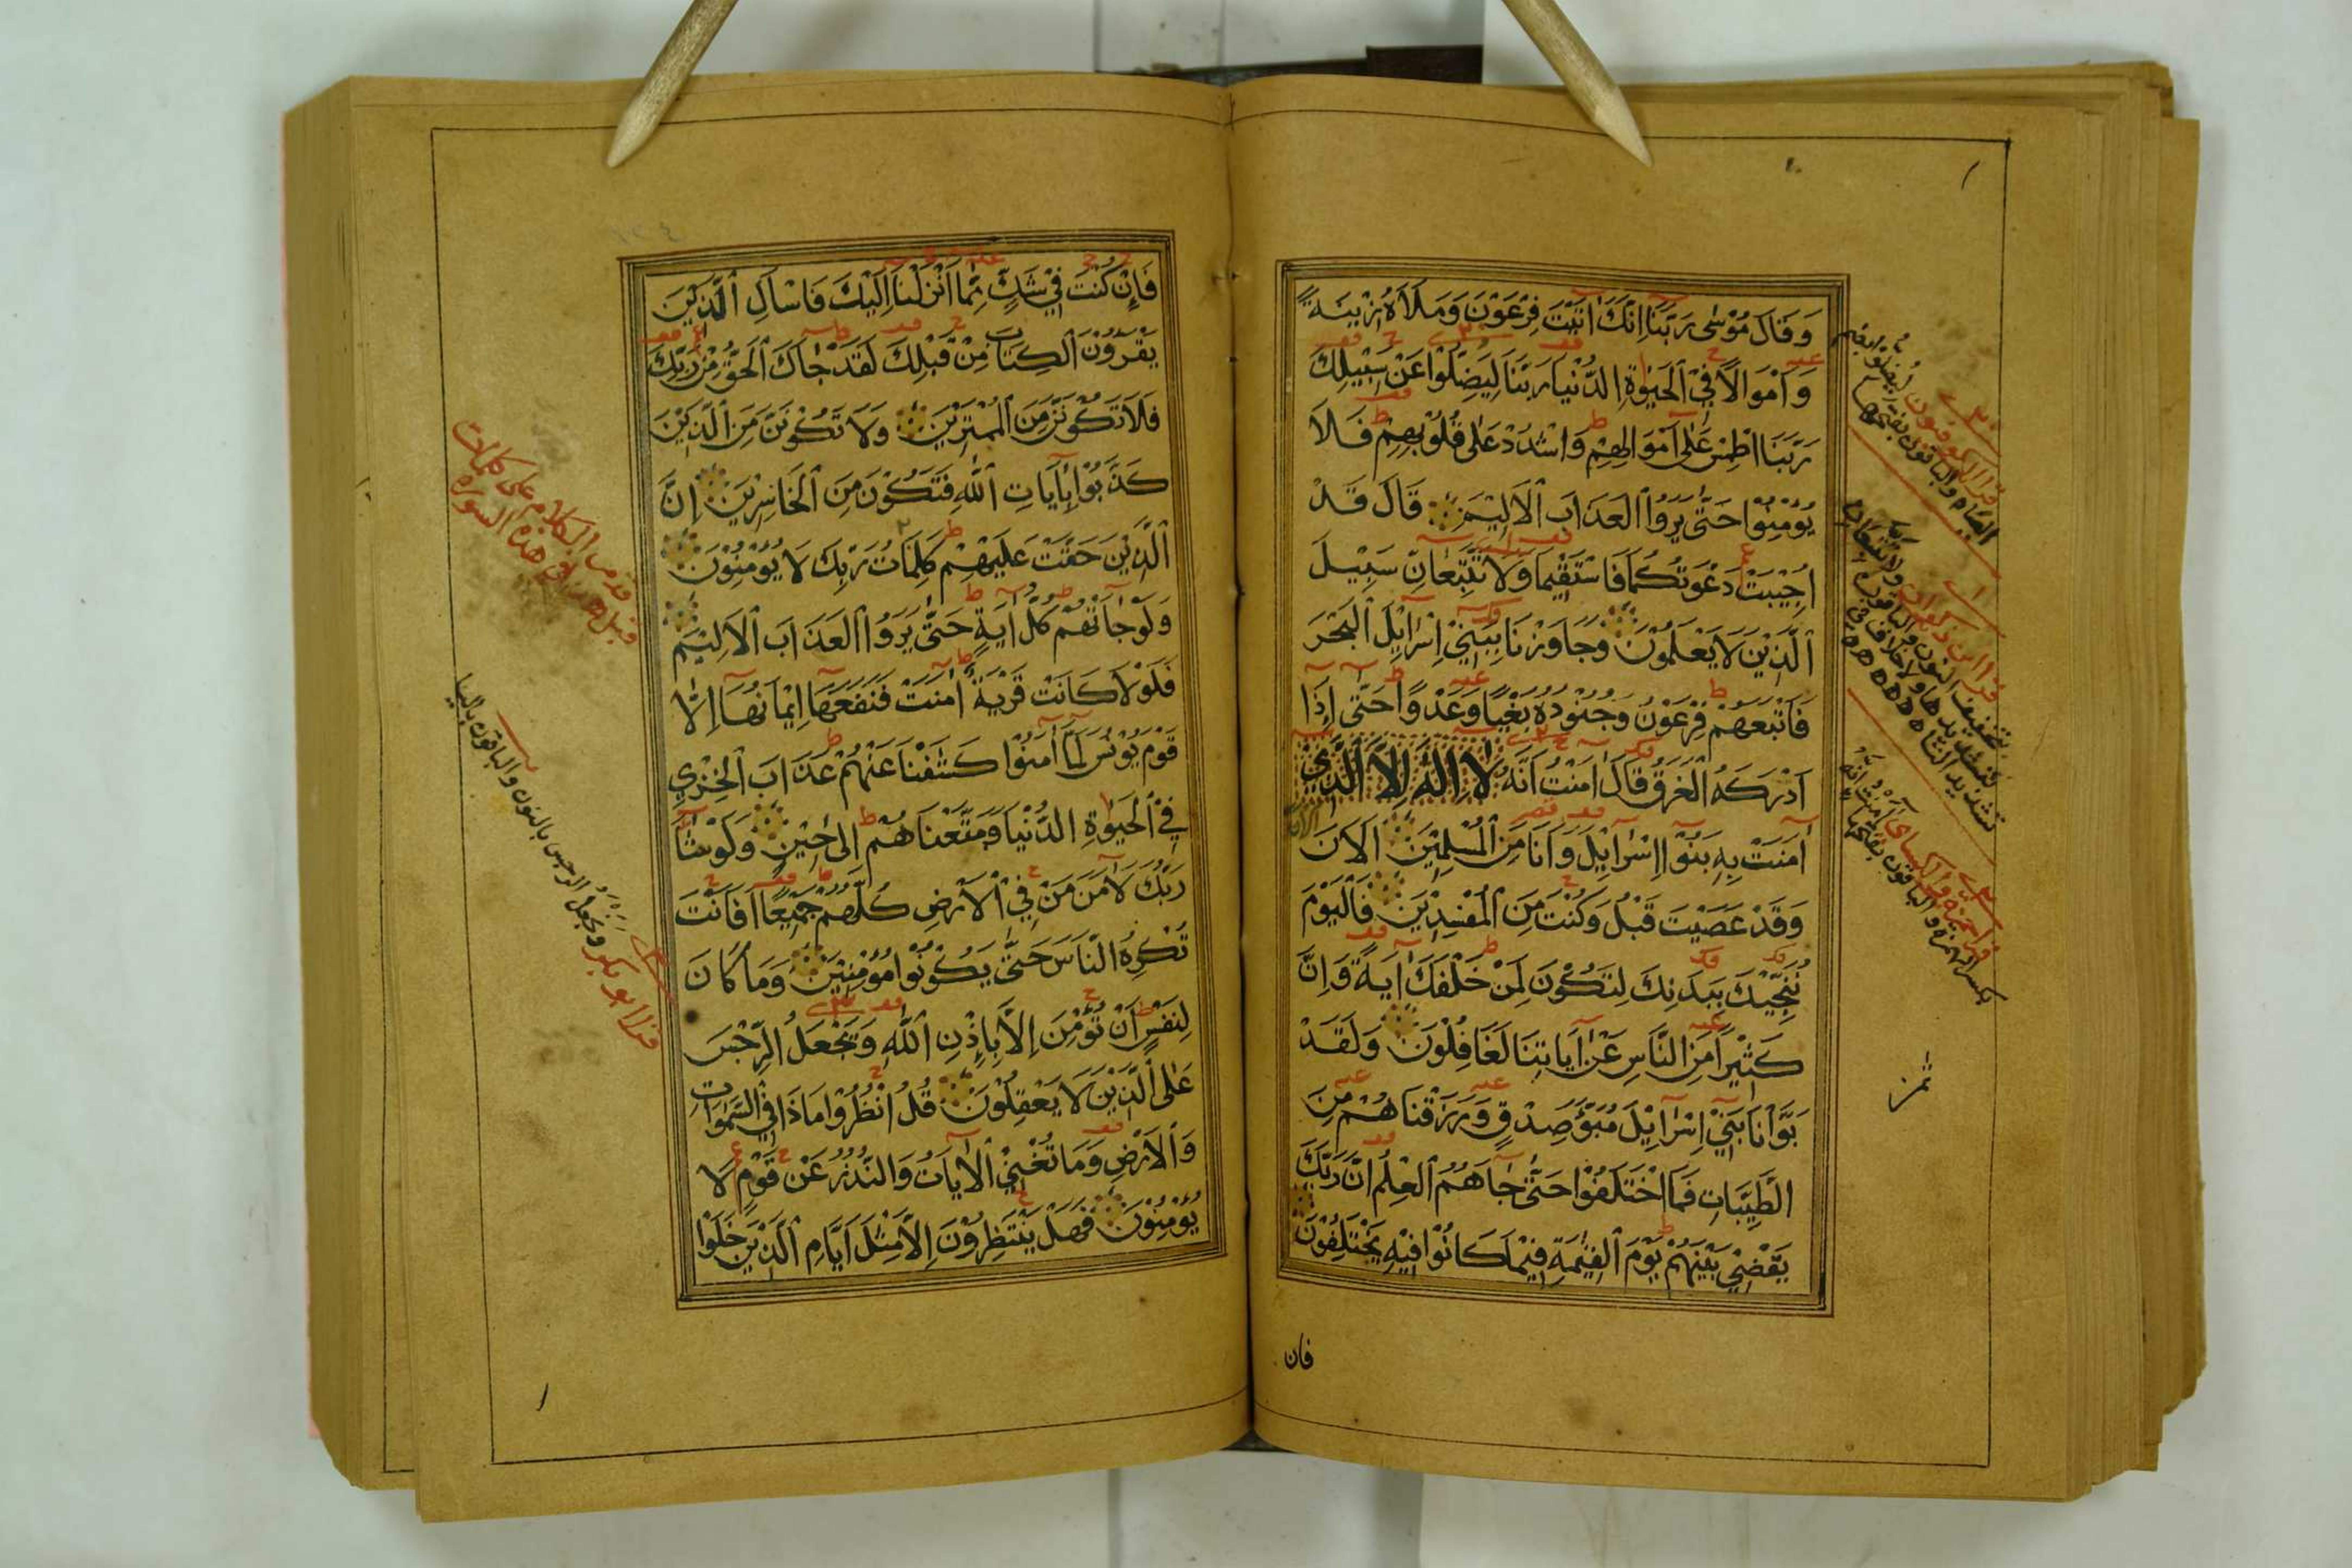 وَقَالَ مُوْسٰى رَبَّنَا اِنَّكَ اٰتَيْتَ فِرْعَوْنَ وَمَلَاَهُ زِيْنَةً
وَاَمْوَالًا فِي الْحَيٰوةِ الدُّنْيَا رَبَّنَا لِيَضِلُّوْا عَنْ سَبِيْلِكَ
رَبَّنَا اطْمِسْ عَلٰى اَمْوَالِهِمْ وَاشْدُدْ عَلٰى قُلُوْبِهِمْ فَلَا
يُؤْمِنُوْا حَتّٰى يَرَوُا الْعَذَابَ الْاَلِيْمَ قَالَ قَدْ
اُجِيْبَتْ دَعْوَتُكُمَا فَاسْتَقِيْمَا وَلَا تَتَّبِعَانِّ سَبِيْلَ
الَّذِيْنَ لَا يَعْلَمُوْنَ وَجَاوَزْنَا بِبَنِيْ اِسْرَائِلَ الْبَحْرَ
فَاَتْبَعَهُمْ فِرْعَوْنُ وَجُنُوْدُهُ بَغْيًا وَعَدْوًا حَتّٰى اِذَا
اَدْرَكَهُ الْغَرَقُ قَالَ اٰمَنْتُ اَنَّهُ لَا اِلٰهَ اِلَّا الَّذِيْ
اٰمَنَتْ بِهِ بَنُوْا اِسْرَائِلَ وَاَنَا مِنَ الْمُسْلِمِيْنَ اَلْاٰنَ
وَقَدْ عَصَيْتَ قَبْلُ وَكُنْتَ مِنَ الْمُفْسِدِيْنَ فَالْيَوْمَ
نُنَجِّيْكَ بِبَدَنِكَ لِتَكُوْنَ لِمَنْ خَلْفَكَ اٰيَةً وَاِنَّ
كَثِيْرًا مِنَ النَّاسِ عَنْ اٰيَاتِنَا لَغَافِلُوْنَ وَلَقَدْ
بَوَّاْنَا بَنِيْ اِسْرَائِلَ مُبَوَّءَ صِدْقٍ وَرَزَقْنَاهُمْ مِنَ
الطَّيِّبَاتِ فَمَا اخْتَلَفُوْا حَتّٰى جَاءَهُمُ الْعِلْمُ اِنَّ رَبَّكَ
يَقْضِيْ بَيْنَهُمْ يَوْمَ الْقِيٰمَةِ فِيْمَا كَانُوْا فِيْهِ يَخْتَلِفُوْنَ
فان
قرا الكوفيون لِيُضِلُّوا بضم
الياء والباقون بفتحها
قرا ابن ذكوان وَلَا تَتَّبِعَانِ
بتخفيف النون والباقون
بتشديدها ولا خلاف في
تشديد التاء
قرا حمزة والكسائي اٰمَنْتُ اِنَّهُ
بكسر الهمزة والباقون بفتحها
ثمن
١٢٤
فَاِنْ كُنْتَ فِيْ شَكٍّ مِمَّا اَنْزَلْنَا اِلَيْكَ فَاسْاَلِ الَّذِيْنَ
يَقْرَؤُنَ الْكِتَابَ مِنْ قَبْلِكَ لَقَدْ جَاءَكَ الْحَقُّ مِنْ رَبِّكَ
فَلَا تَكُوْنَنَّ مِنَ الْمُمْتَرِيْنَ وَلَا تَكُوْنَنَّ مِنَ الَّذِيْنَ
كَذَّبُوْا بِاٰيَاتِ اللّٰهِ فَتَكُوْنَ مِنَ الْخَاسِرِيْنَ اِنَّ
الَّذِيْنَ حَقَّتْ عَلَيْهِمْ كَلِمَاتُ رَبِّكَ لَا يُؤْمِنُوْنَ
وَلَوْ جَاءَتْهُمْ كُلُّ اٰيَةٍ حَتّٰى يَرَوُا الْعَذَابَ الْاَلِيْمَ
فَلَوْلَا كَانَتْ قَرْيَةٌ اٰمَنَتْ فَنَفَعَهَا اِيْمَانُهَا اِلَّا
قَوْمَ يُوْنُسَ لَمَّا اٰمَنُوْا كَشَفْنَا عَنْهُمْ عَذَابَ الْخِزْيِ
فِي الْحَيٰوةِ الدُّنْيَا وَمَتَّعْنَاهُمْ اِلٰى حِيْنٍ وَلَوْ شَاءَ
رَبُّكَ لَاٰمَنَ مَنْ فِي الْاَرْضِ كُلُّهُمْ جَمِيْعًا اَفَاَنْتَ
تُكْرِهُ النَّاسَ حَتّٰى يَكُوْنُوْا مُؤْمِنِيْنَ وَمَا كَانَ
لِنَفْسٍ اَنْ تُؤْمِنَ اِلَّا بِاِذْنِ اللّٰهِ وَيَجْعَلُ الرِّجْسَ
عَلَى الَّذِيْنَ لَا يَعْقِلُوْنَ قُلِ انْظُرُوْا مَاذَا فِي السَّمٰوَاتِ
وَالْاَرْضِ وَمَا تُغْنِيْ الْاٰيَاتُ وَالنُّذُرُ عَنْ قَوْمٍ لَا
يُؤْمِنُوْنَ فَهَلْ يَنْتَظِرُوْنَ اِلَّا مِثْلَ اَيَّامِ الَّذِيْنَ خَلَوْا
قد مر الكلام على كلمات
قبل هذا في هذه السورة
قرا ابو بكر وَنَجْعَلُ الرجس بالنون والباقون بالياء